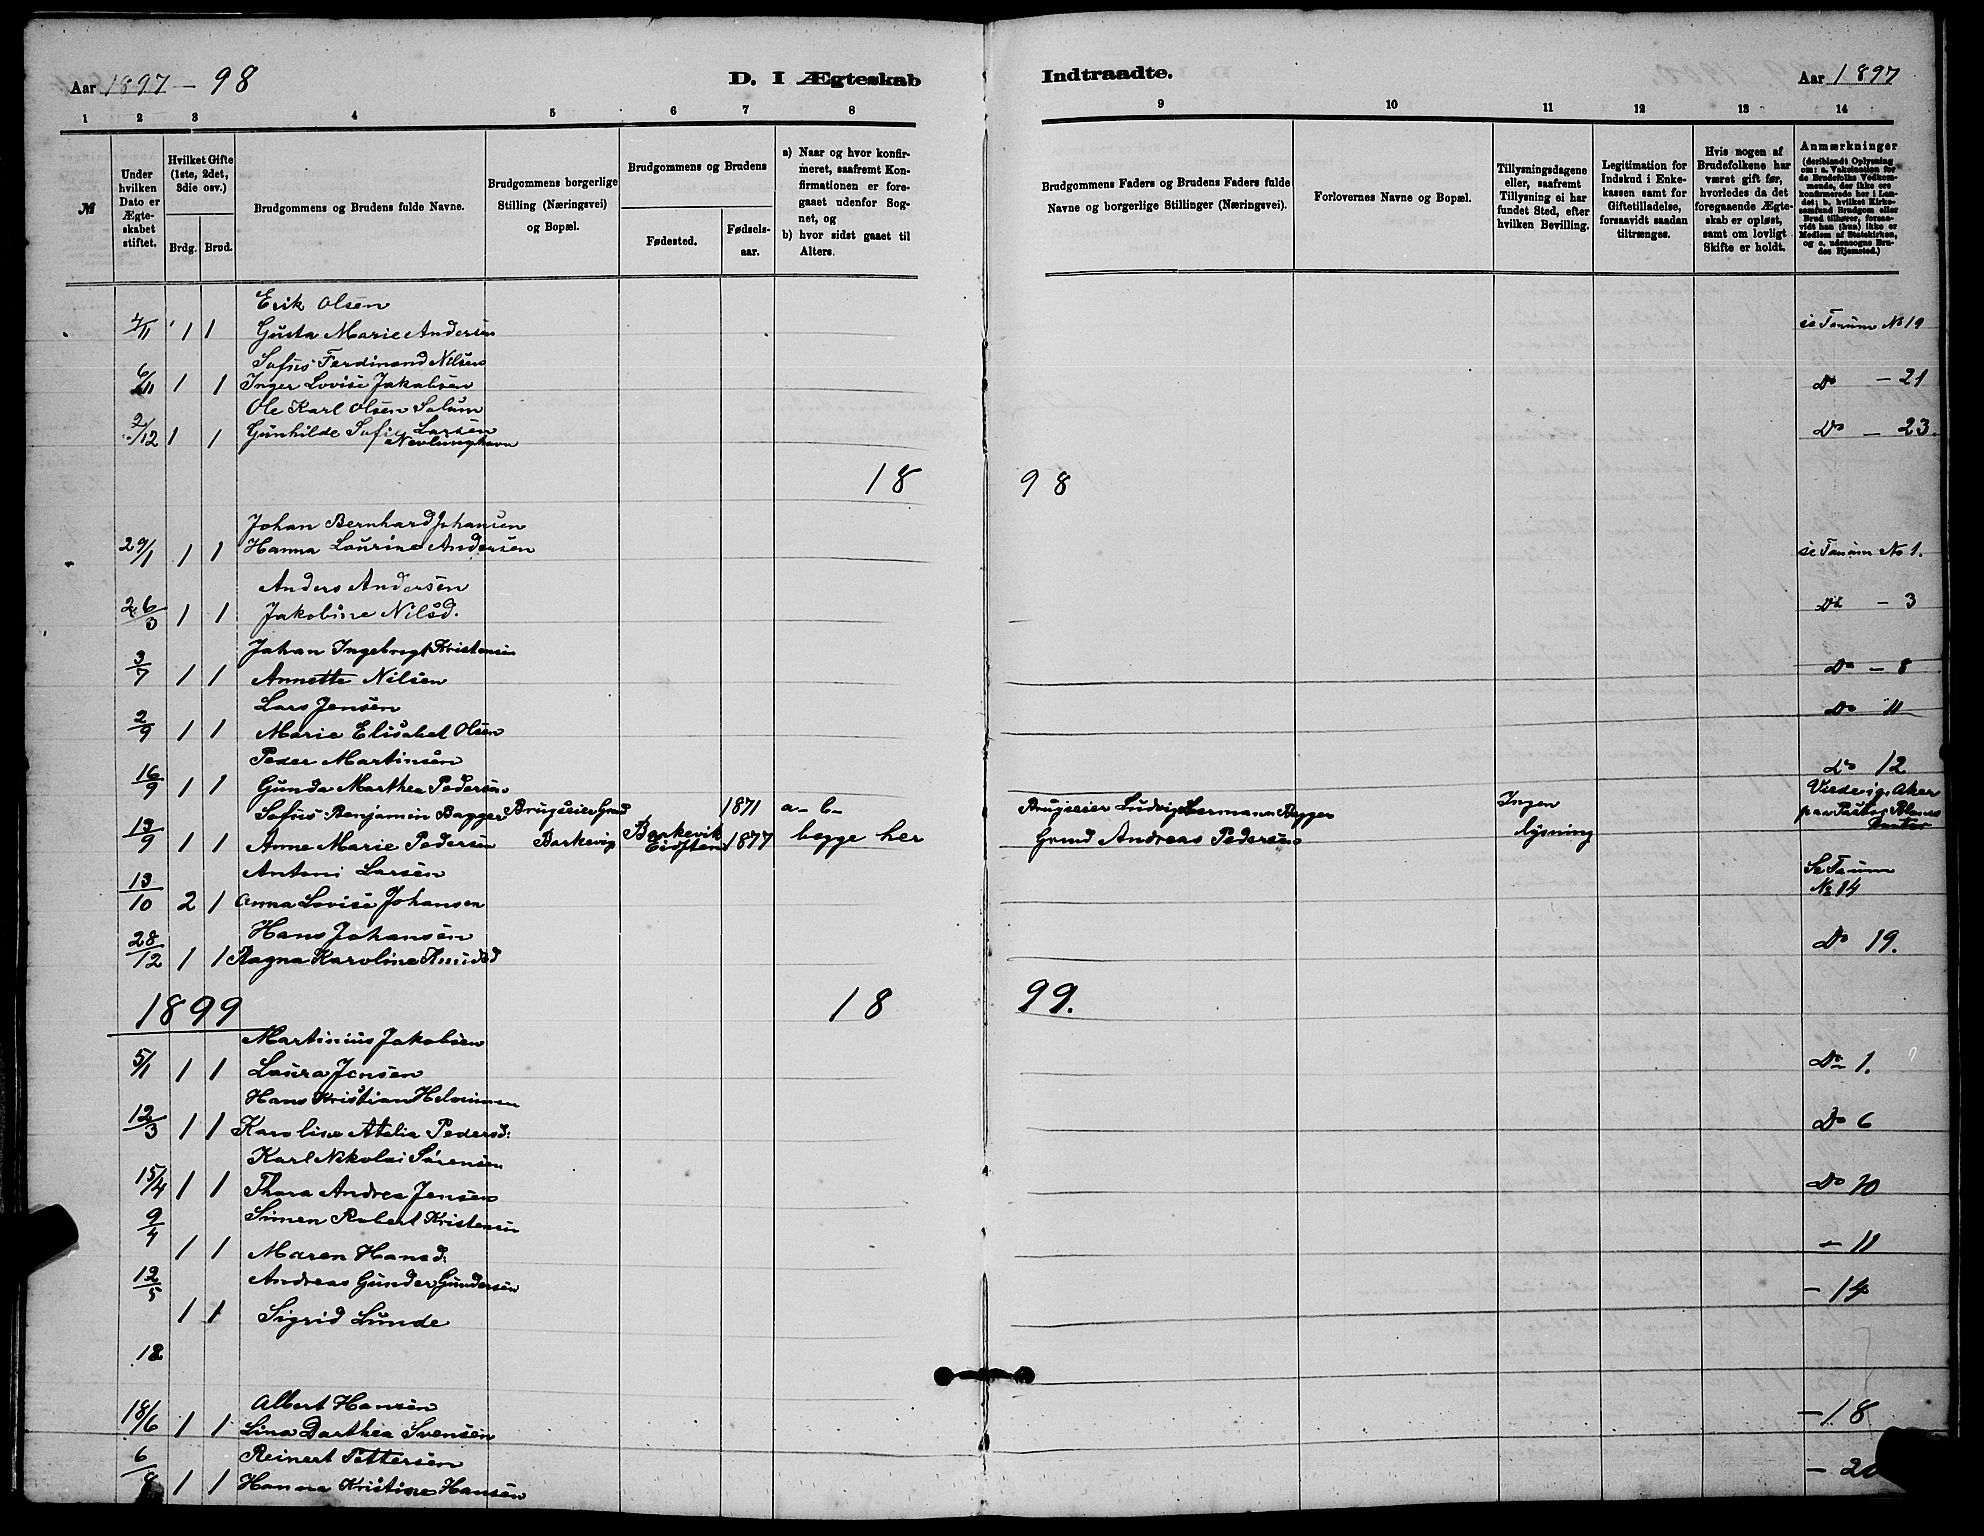 Aar 1897 - 98
D. I Ægteskab
Indtraadte.
Aar 1897
1 2 3 4 5 6 7 8
9 10 11 12 13 14
№
Under hvilken Dato er Ægteskabet stiftet.
Hvilket Gifte (1ste, 2det, 3die osv.)
Brdg. Brud.
Brudgommens og Brudens fulde Navne.
Brudgommens borgerlige Stilling (Næringsvei) og Bopæl.
Brudgommens og Brudens
Fødested.
Fødselsaar.
a) Naar og hvor konfirmeret, saafremt Konfirmationen er foregaaet udenfor Sognet, og
b) hvor sidst gaaet til Alters.
Brudgommens Faders og Brudens Faders fulde Navne og borgerlige Stillinger (Næringsvei).
Forlovernes Navne og Bopæl.
Tillysningsdagene eller, saafremt Tillysning ei har fundet Sted, efter hvilken Bevilling.
Legitimation for Indskud i Enkekassen samt for Giftetilladelse, forsaavidt saadan tiltrænges.
Hvis nogen af Brudefolkene har været gift før, hvorledes da det foregaaende Ægteskab er opløst, samt om lovligt Skifte er holdt.
Anmærkninger
(deriblandt Oplysning om: a. Vakcination for de Brudefolks Vedkommende, der ikke ere konfirmerede her i Landet; b. hvilket Kirkesamfund Brudgom eller Brud tilhører, forsaavidt han (hun) ikke er Medlem af Statskirken, og c. udensogns Brudes Hjemsted.)
Erik Olsen
4/11 1 1 Gusta Marie Andersen se Tanum No 19
Sofus Ferdinand Nilsen
6/11 1 1 Inger Lovise Jakobsen Do - 21
Ole Karl Olsen Solum
2/12 1 1 Gunhilde Sofie Larsen Nevlunghavn Do - 23.
18 98
Johan Bernhard Johansen
29/1 1 1 Hanna Laurine Andersen se Tanum No 1.
Anders Andersen
26/3 1 1 Jakobine Nilsd. Do - 3
Johan Ingebregt Kristensen
3/7 1 1 Annette Nilsen Do - 8
Lars Jensen
2/9 1 1 Marie Elisabet Olsen Do 11
Peder Martinsen
16/9 1 1 Gunda Marthea Pedersen Do 12
Sofus Benjamin Bagger Brugseier Grnd 1871 a- b- Brugseier Ludvig Herman Bagger Ingen
13/9 1 1 Anne Marie Pedersen Barkevig Barkevik Eidsten 1877 begge her Grmd Andreas Pedersen lysning
Antoni Larsen Se Tanum
13/10 2 1 Anna Lovise Johansen No 14
Hans Johansen
28/12 1 1 Ragna Karoline Do 19.
1899 18 99.
Martinius Jakobsen
5/1 1 1 Laura Jensen Do 1.
Hans Kristian
12/3 1 1 Karoline Atelia Pedersd: Do 6
Karl Nikolai Sørensen
15/4 1 1 Thora Andrea Jensen Do 10
9/4 Simen Robert Kristensen
1 1 Maren Hansd: - 11
12/5 Andreas Gunder Gundersen
1 1 Sigrid Lunde - 14
18
Albert Hansen
18/6 1 1 Lina Dorthea Svensen - 18
Reinert Pettersen
6/ 1 1 Hanna Kristine Hansen